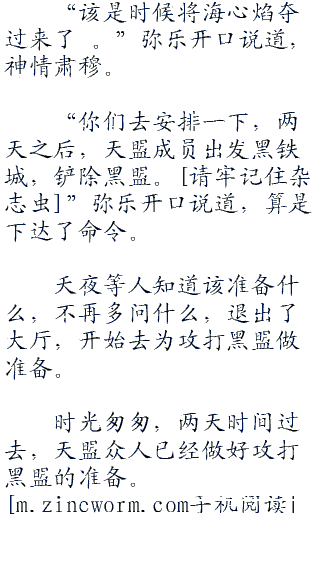 “该是时候将海心焰夺
过来了 。”弥乐开口说道，
神情肃穆。
“你们去安排一下，两
天之后，天盟成员出发黑铁
城，铲除黑盟。[请牢记住杂
志虫]”弥乐开口说道，算是
下达了命令。
天夜等人知道该准备什
么，不再多问什么，退出了
大厅，开始去为攻打黑盟做
准备。
时光匆匆，两天时间过
去，天盟众人已经做好攻打
黑盟的准备。
[m.zincworm.com手机阅读]